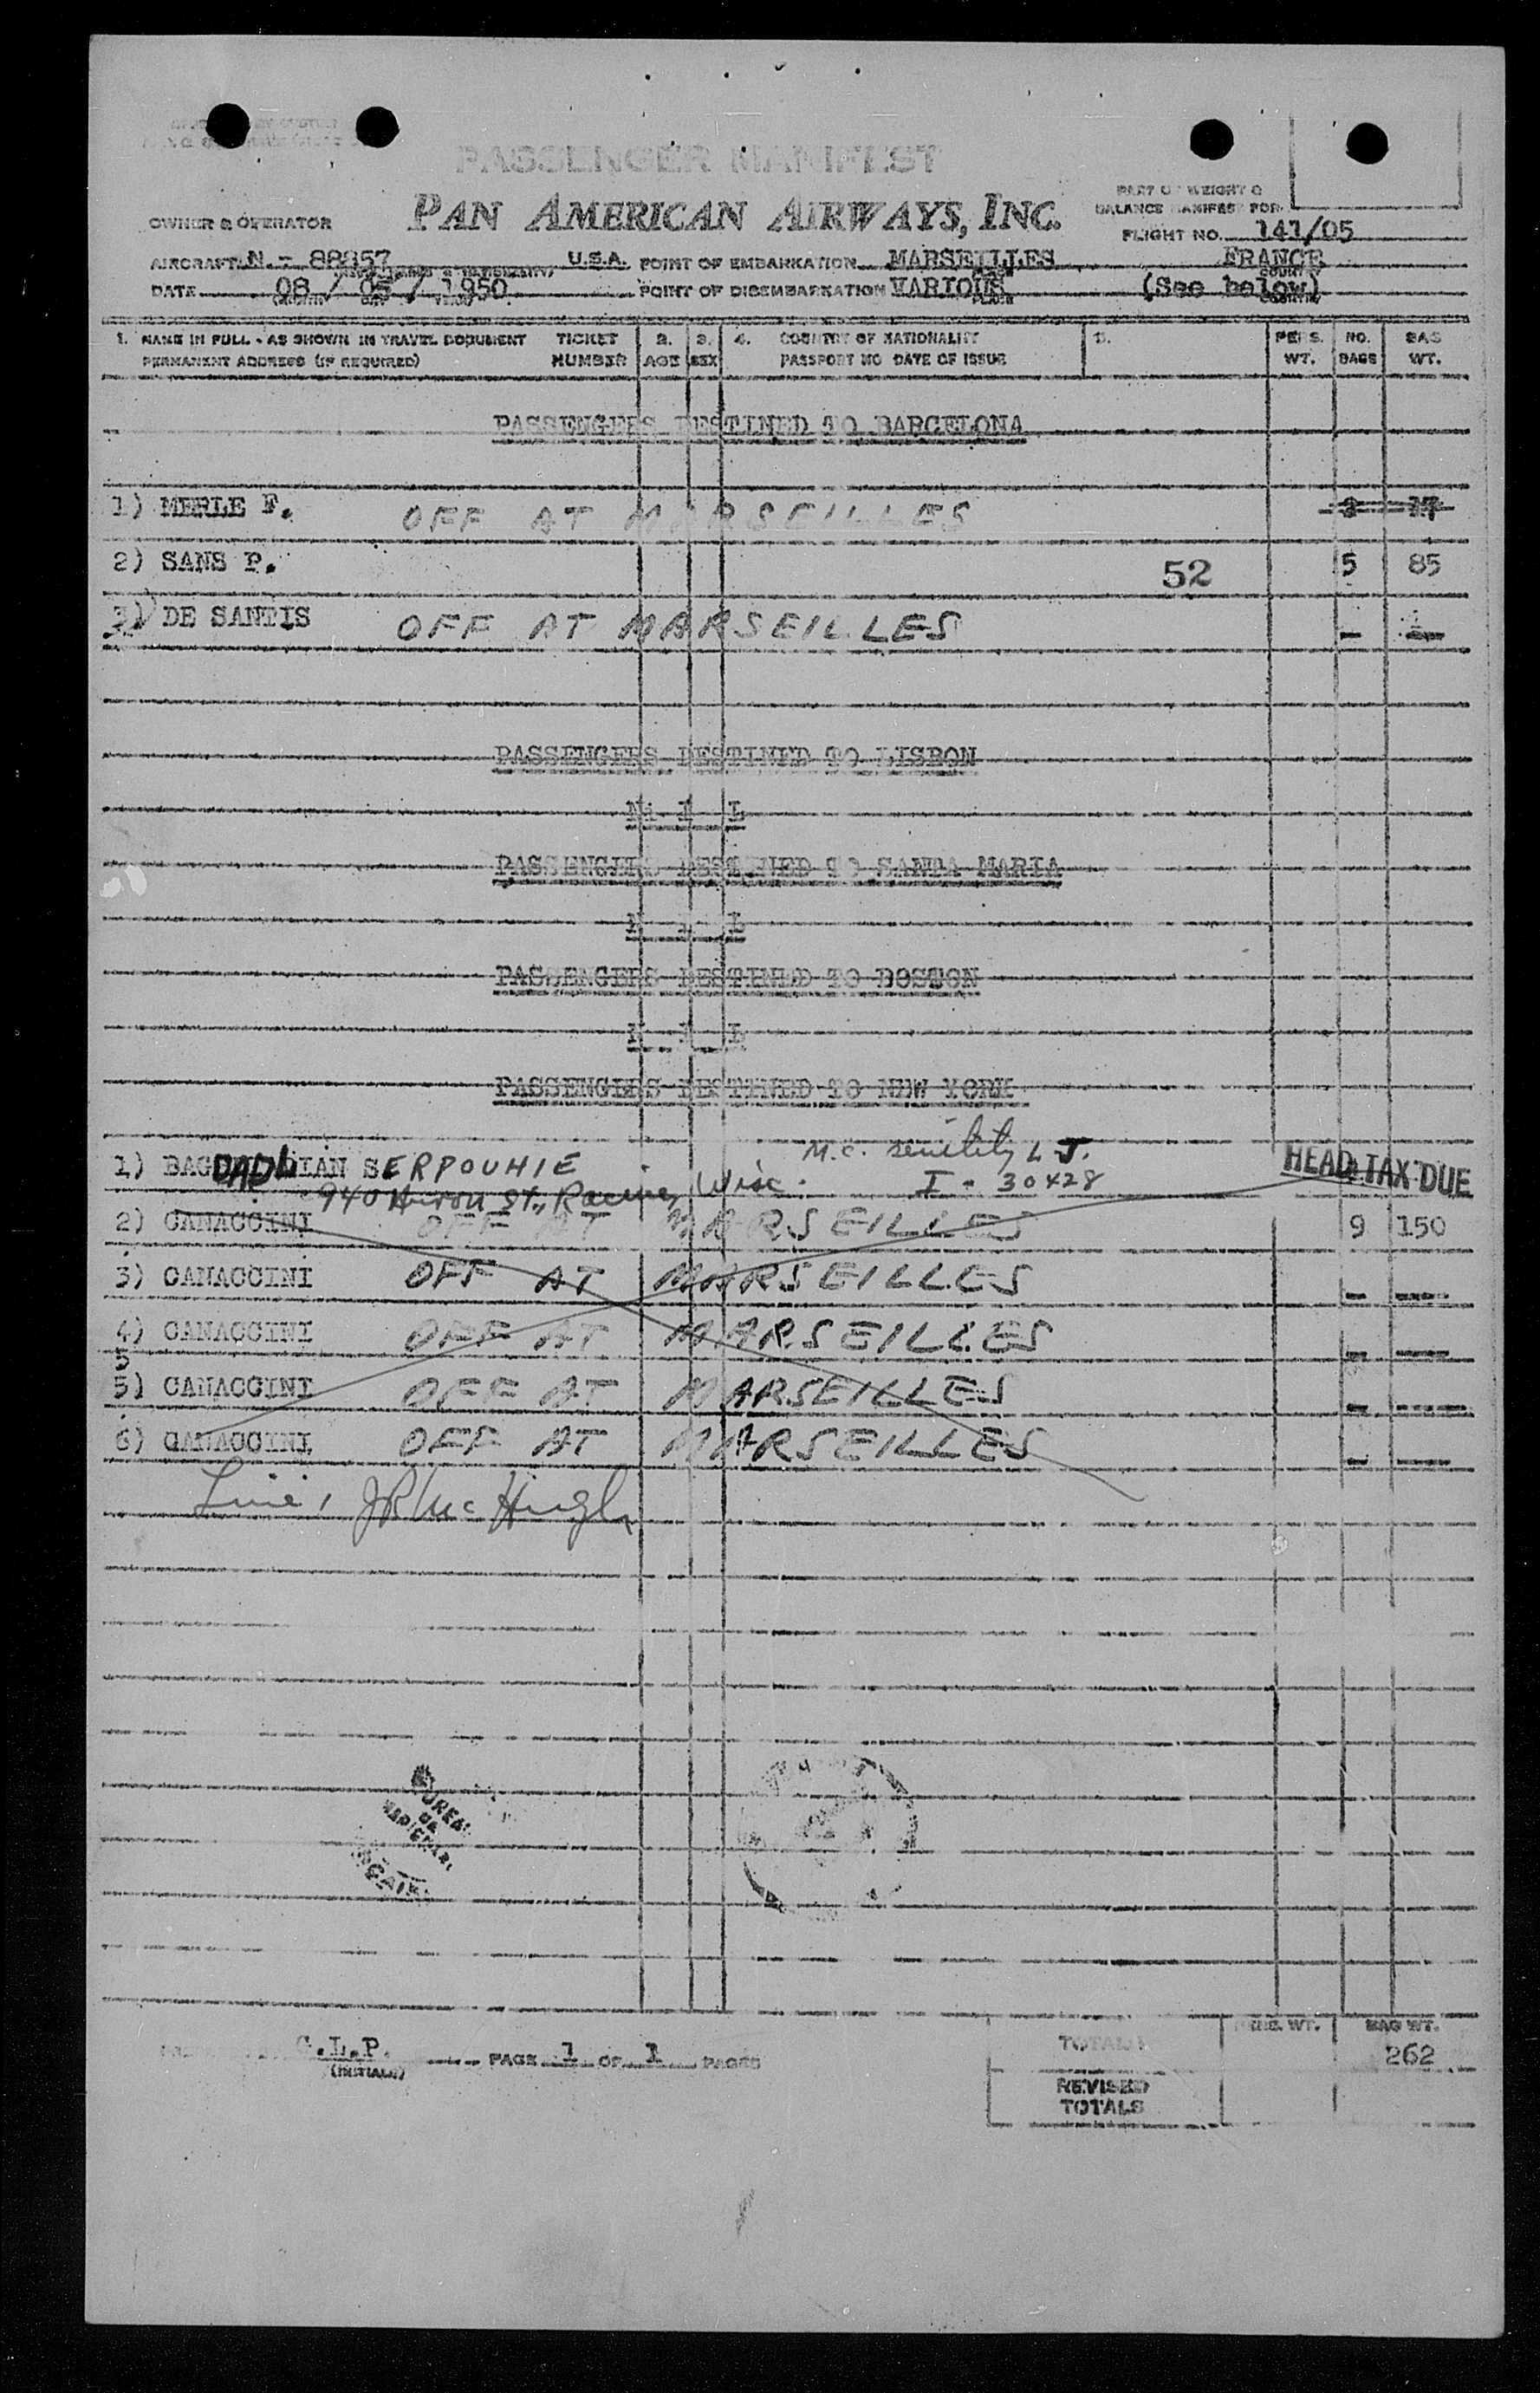 PASSENGER MANIFEST
PAN AMERICAN AIRWAYS, INC.
OWNER & OPERATOR
PART OF WEIGHT &
BALANCE MANIFEST FOR
FLIGHT NO. 141/05
AIRCRAFT N - 88857 U.S.A. POINT OF EMBARKATION MARSEILLES FRANCE
DATE 08 / 05 / 1950 POINT OF DISEMBARKATION VARIOUS (See below)
1. NAME IN FULL - AS SHOWN IN TRAVEL DOCUMENT TICKET 2. 3. 4. COUNTRY OF NATIONALITY 5. PERS. NO. BAG
PERMANENT ADDRESS (IF REQUIRED) NUMBER AGE SEX PASSPORT NO DATE OF ISSUE WT. BAGS WT.
PASSENGERS DESTINED TO BARCELONA
1) MERLE F. OFF AT MARSEILLES
2) SANS P. 52 5 85
3) DE SANTIS OFF AT MARSEILLES
PASSENGERS DESTINED TO LISBON
N I L
PASSENGERS DESTINED TO SANTA MARIA
N I L
PASSENGERS DESTINED TO BOSTON
N I L
PASSENGERS DESTINED TO NEW YORK
1) BAGDADLIAN SERPOUHIE M.C. L J. HEAD TAX DUE
940 Huron St., Racine, Wisc. I - 30428
2) CANACCINI OFF AT MARSEILLES 9 150
3) CANACCINI OFF AT MARSEILLES
4) CANACCINI OFF AT MARSEILLES
5) CANACCINI OFF AT MARSEILLES
6) CANACCINI OFF AT MARSEILLES
JR McHugh
TOTALS PERS. WT. BAG WT.
.L.P. PAGE 1 OF 1 PAGES 262
(INITIALS)
REVISED
TOTALS